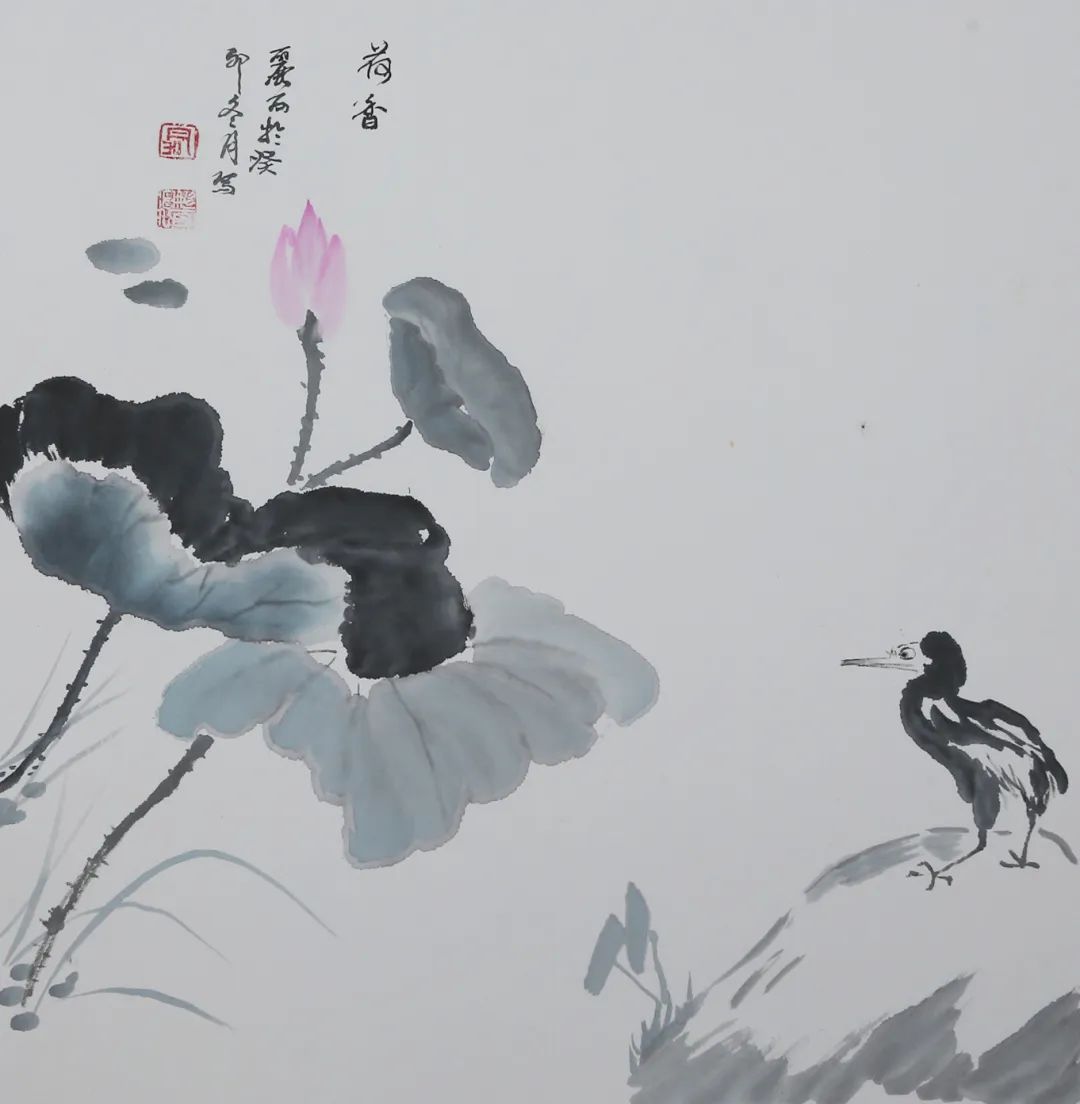 荷香
丽石於癸
卯冬月写